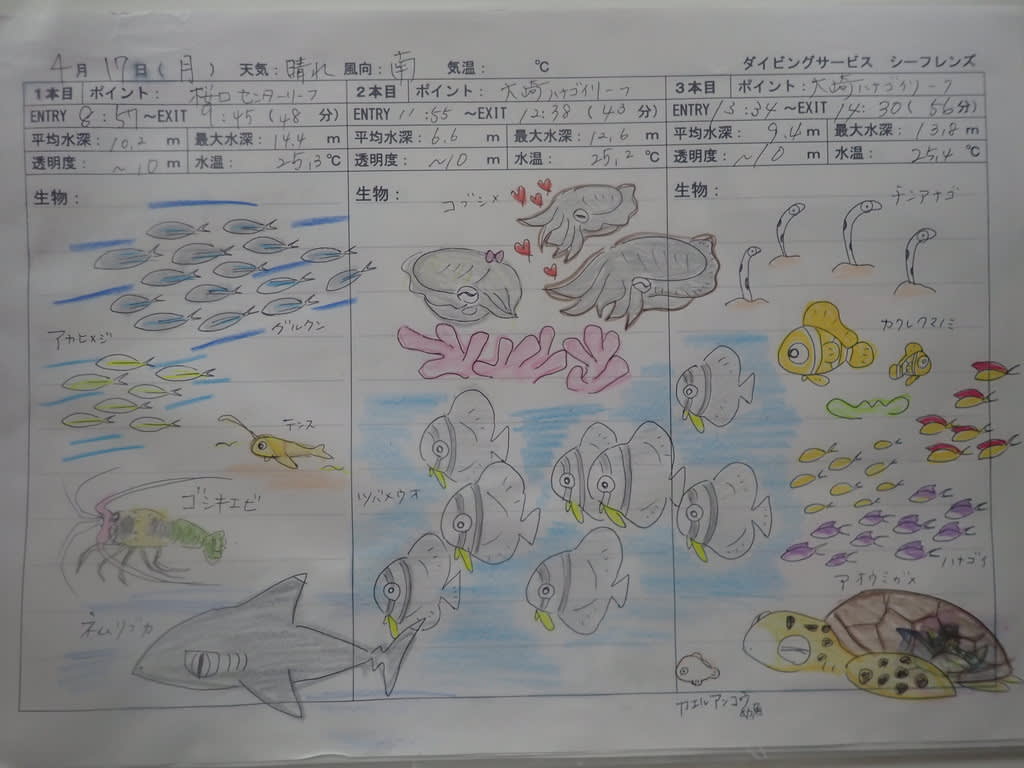 4月 17日(月) 天気:晴れ 風向:南 気温: ℃ ダイビングサービス シーフレンズ
1本目 ポイント: 桜口センターリーフ
ENTRY 8:57 ～EXIT 9:45 (48 分)
平均水深:10.2 m 最大水深:14.4 m
透明度: ～10 m 水温: 25.3℃
生物:
グルクン
アカヒメジ
テンス
ゴシキエビ
ネムリブカ
2本目 ポイント: 大崎ハナゴイリーフ
ENTRY 11:55 ～EXIT 12:38 (43 分)
平均水深:6.6 m 最大水深:12.6 m
透明度: ～10 m 水温: 25.2℃
生物:
コブシメ
ツバメウオ
3本目 ポイント: 大崎ハナゴイリーフ
ENTRY 13:34 ～EXIT 14:30 (56分)
平均水深: 9.4m 最大水深: 13.8 m
透明度: ～10 m 水温: 25.4 ℃
生物:
チンアナゴ
カクレクマノミ
ハナゴイ
アオウミガメ
カエルアンコウ
幼魚